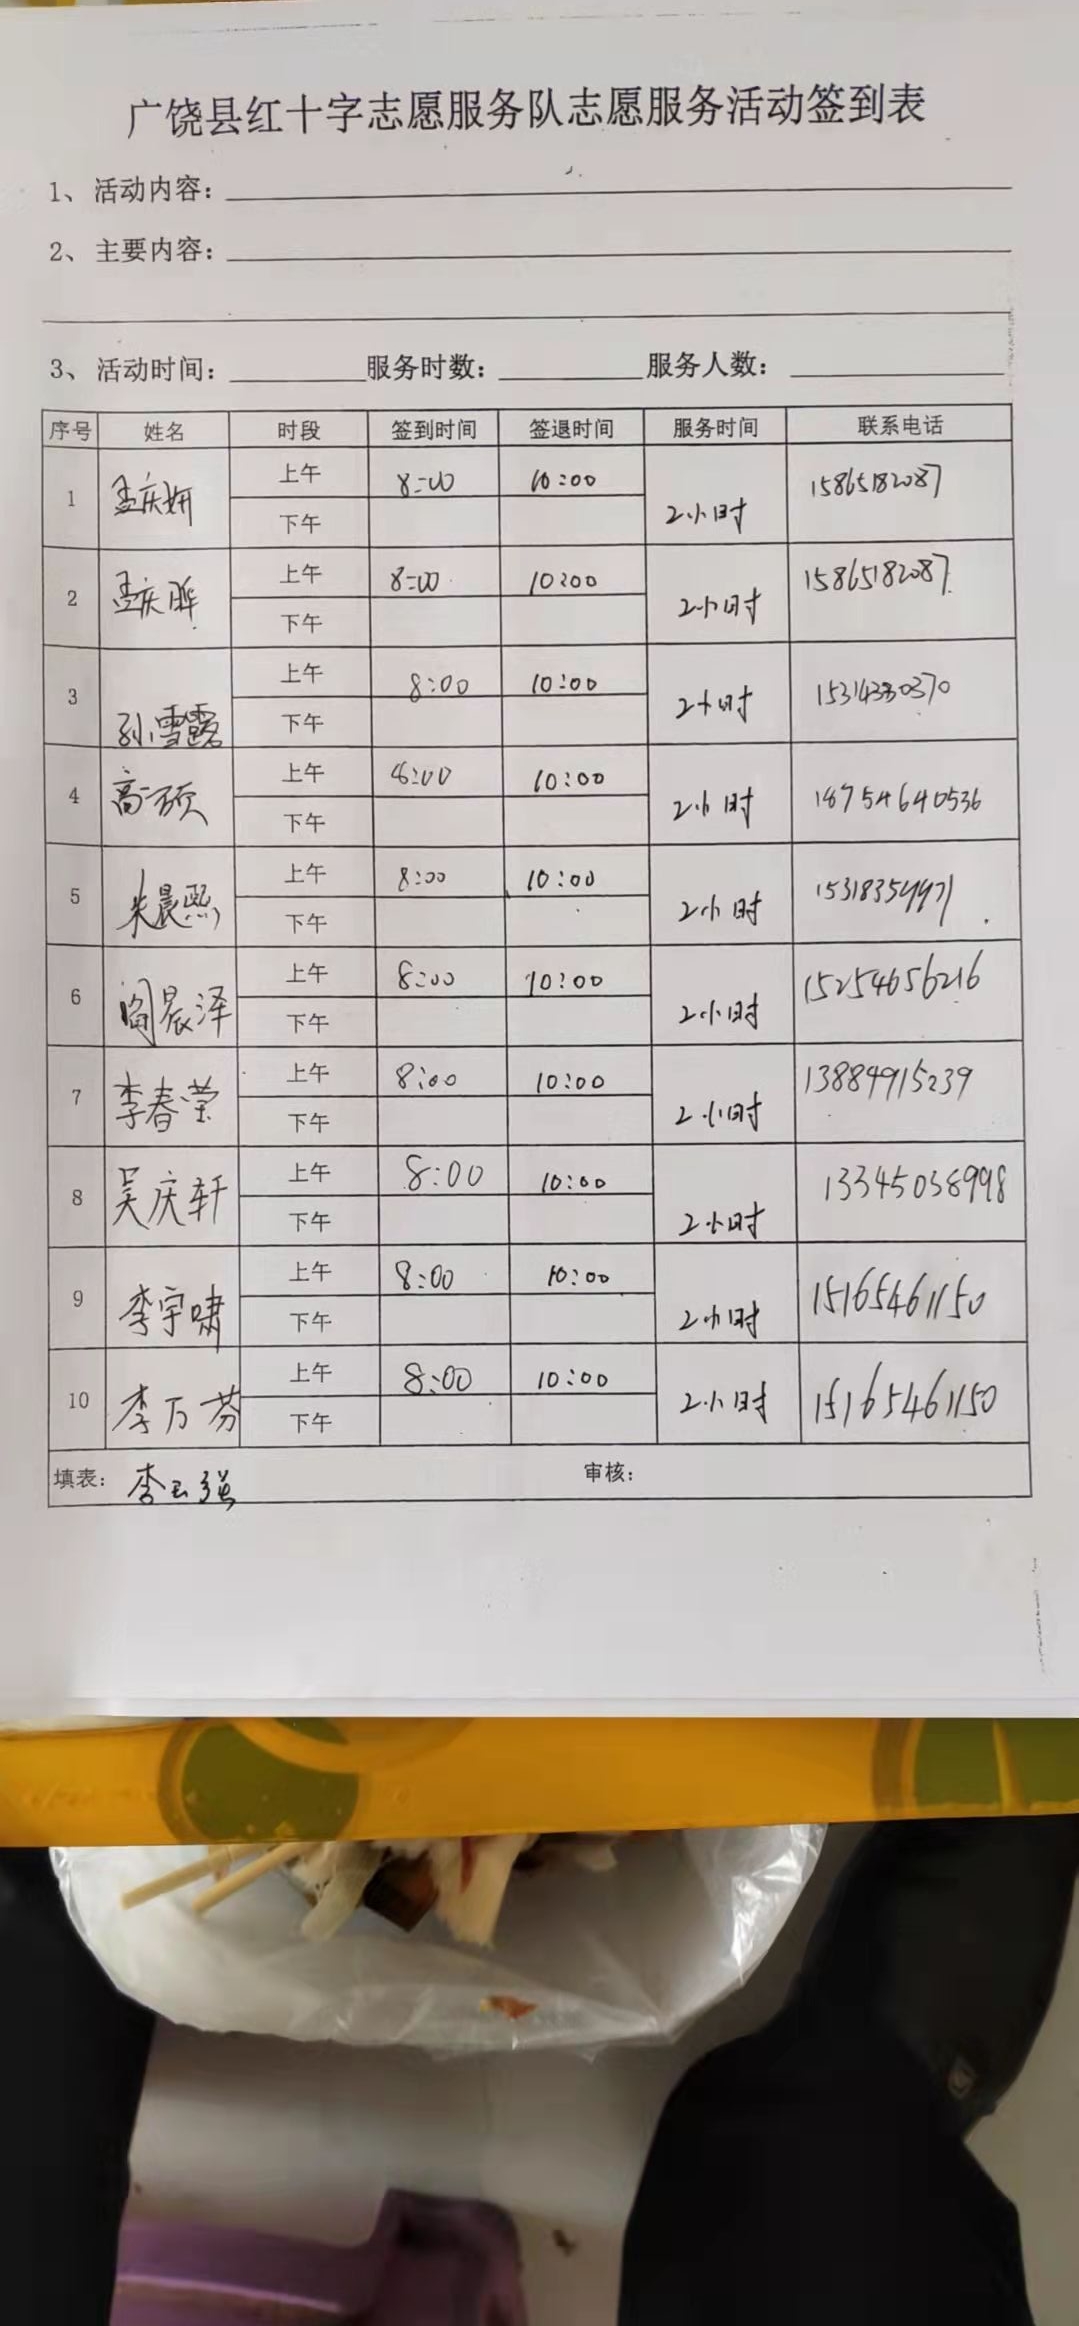 广饶县红十字志愿服务队志愿服务活动签到表
1、活动内容：
2、主要内容：
3、活动时间： 服务时数： 服务人数：
序号 姓名 时段 签到时间 签退时间 服务时间 联系电话
1 孟庆妍 上午 8:00 10:00 2小时 15865182087
下午
2 孟庆晔 上午 8:00 10:00 2小时 15865182087
下午
3 孙雪露 上午 8:00 10:00 2小时 15314330370
下午
4 高硕 上午 8:00 10:00 2小时 18754640536
下午
5 朱晨熙 上午 8:00 10:00 2小时
下午
6 阎晨泽 上午 8:00 10:00 2小时 15254656216
下午
7 李春莹 上午 8:00 10:00 2小时 13884915239
下午
8 吴庆轩 上午 8:00 10:00 2小时
下午
9 李宇啸 上午 8:00 10:00 2小时 15165461150
下午
10 李万芬 上午 8:00 10:00 2小时 15165461150
下午
填表： 李玉强 审核：